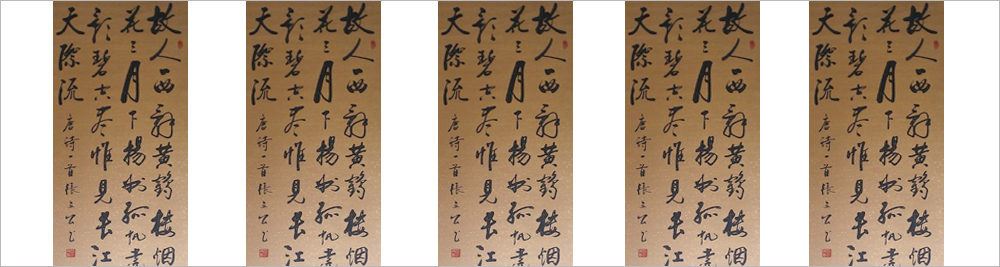 故人西辞黄鹤楼烟
花三月下揚州孤帆远
影碧空尽惟見长江
天際流
唐诗一首張
故人西辞黄鹤楼烟
花三月下揚州孤帆远
影碧空尽惟見长江
天際流
唐诗一首張
故人西辞黄鹤楼烟
花三月下揚州孤帆远
影碧空尽惟見长江
天際流
唐诗一首張
故人西辞黄鹤楼烟
花三月下揚州孤帆远
影碧空尽惟見长江
天際流
唐诗一首張
故人西辞黄鹤楼烟
花三月下揚州孤帆远
影碧空尽惟見长江
天際流
唐诗一首張